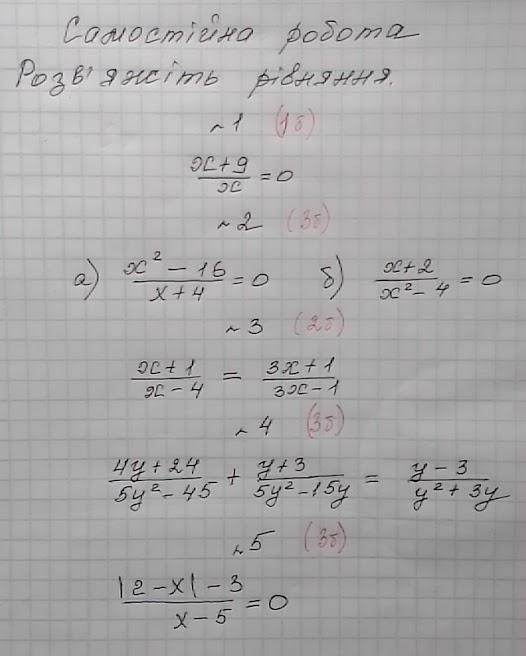 Самостійна робота
Розв'яжіть рівняння.
~1 (1б)
(x+9)/x = 0
~2 (3б)
а) (x² - 16)/(x+4) = 0 б) (x+2)/(x² - 4) = 0
~3 (2б)
(x+1)/(x-4) = (3x+1)/(3x-1)
~4 (3б)
(4y+24)/(5y²-45) + (y+3)/(5y²-15y) = (y-3)/(y²+3y)
~5 (3б)
(|2-x|-3)/(x-5) = 0